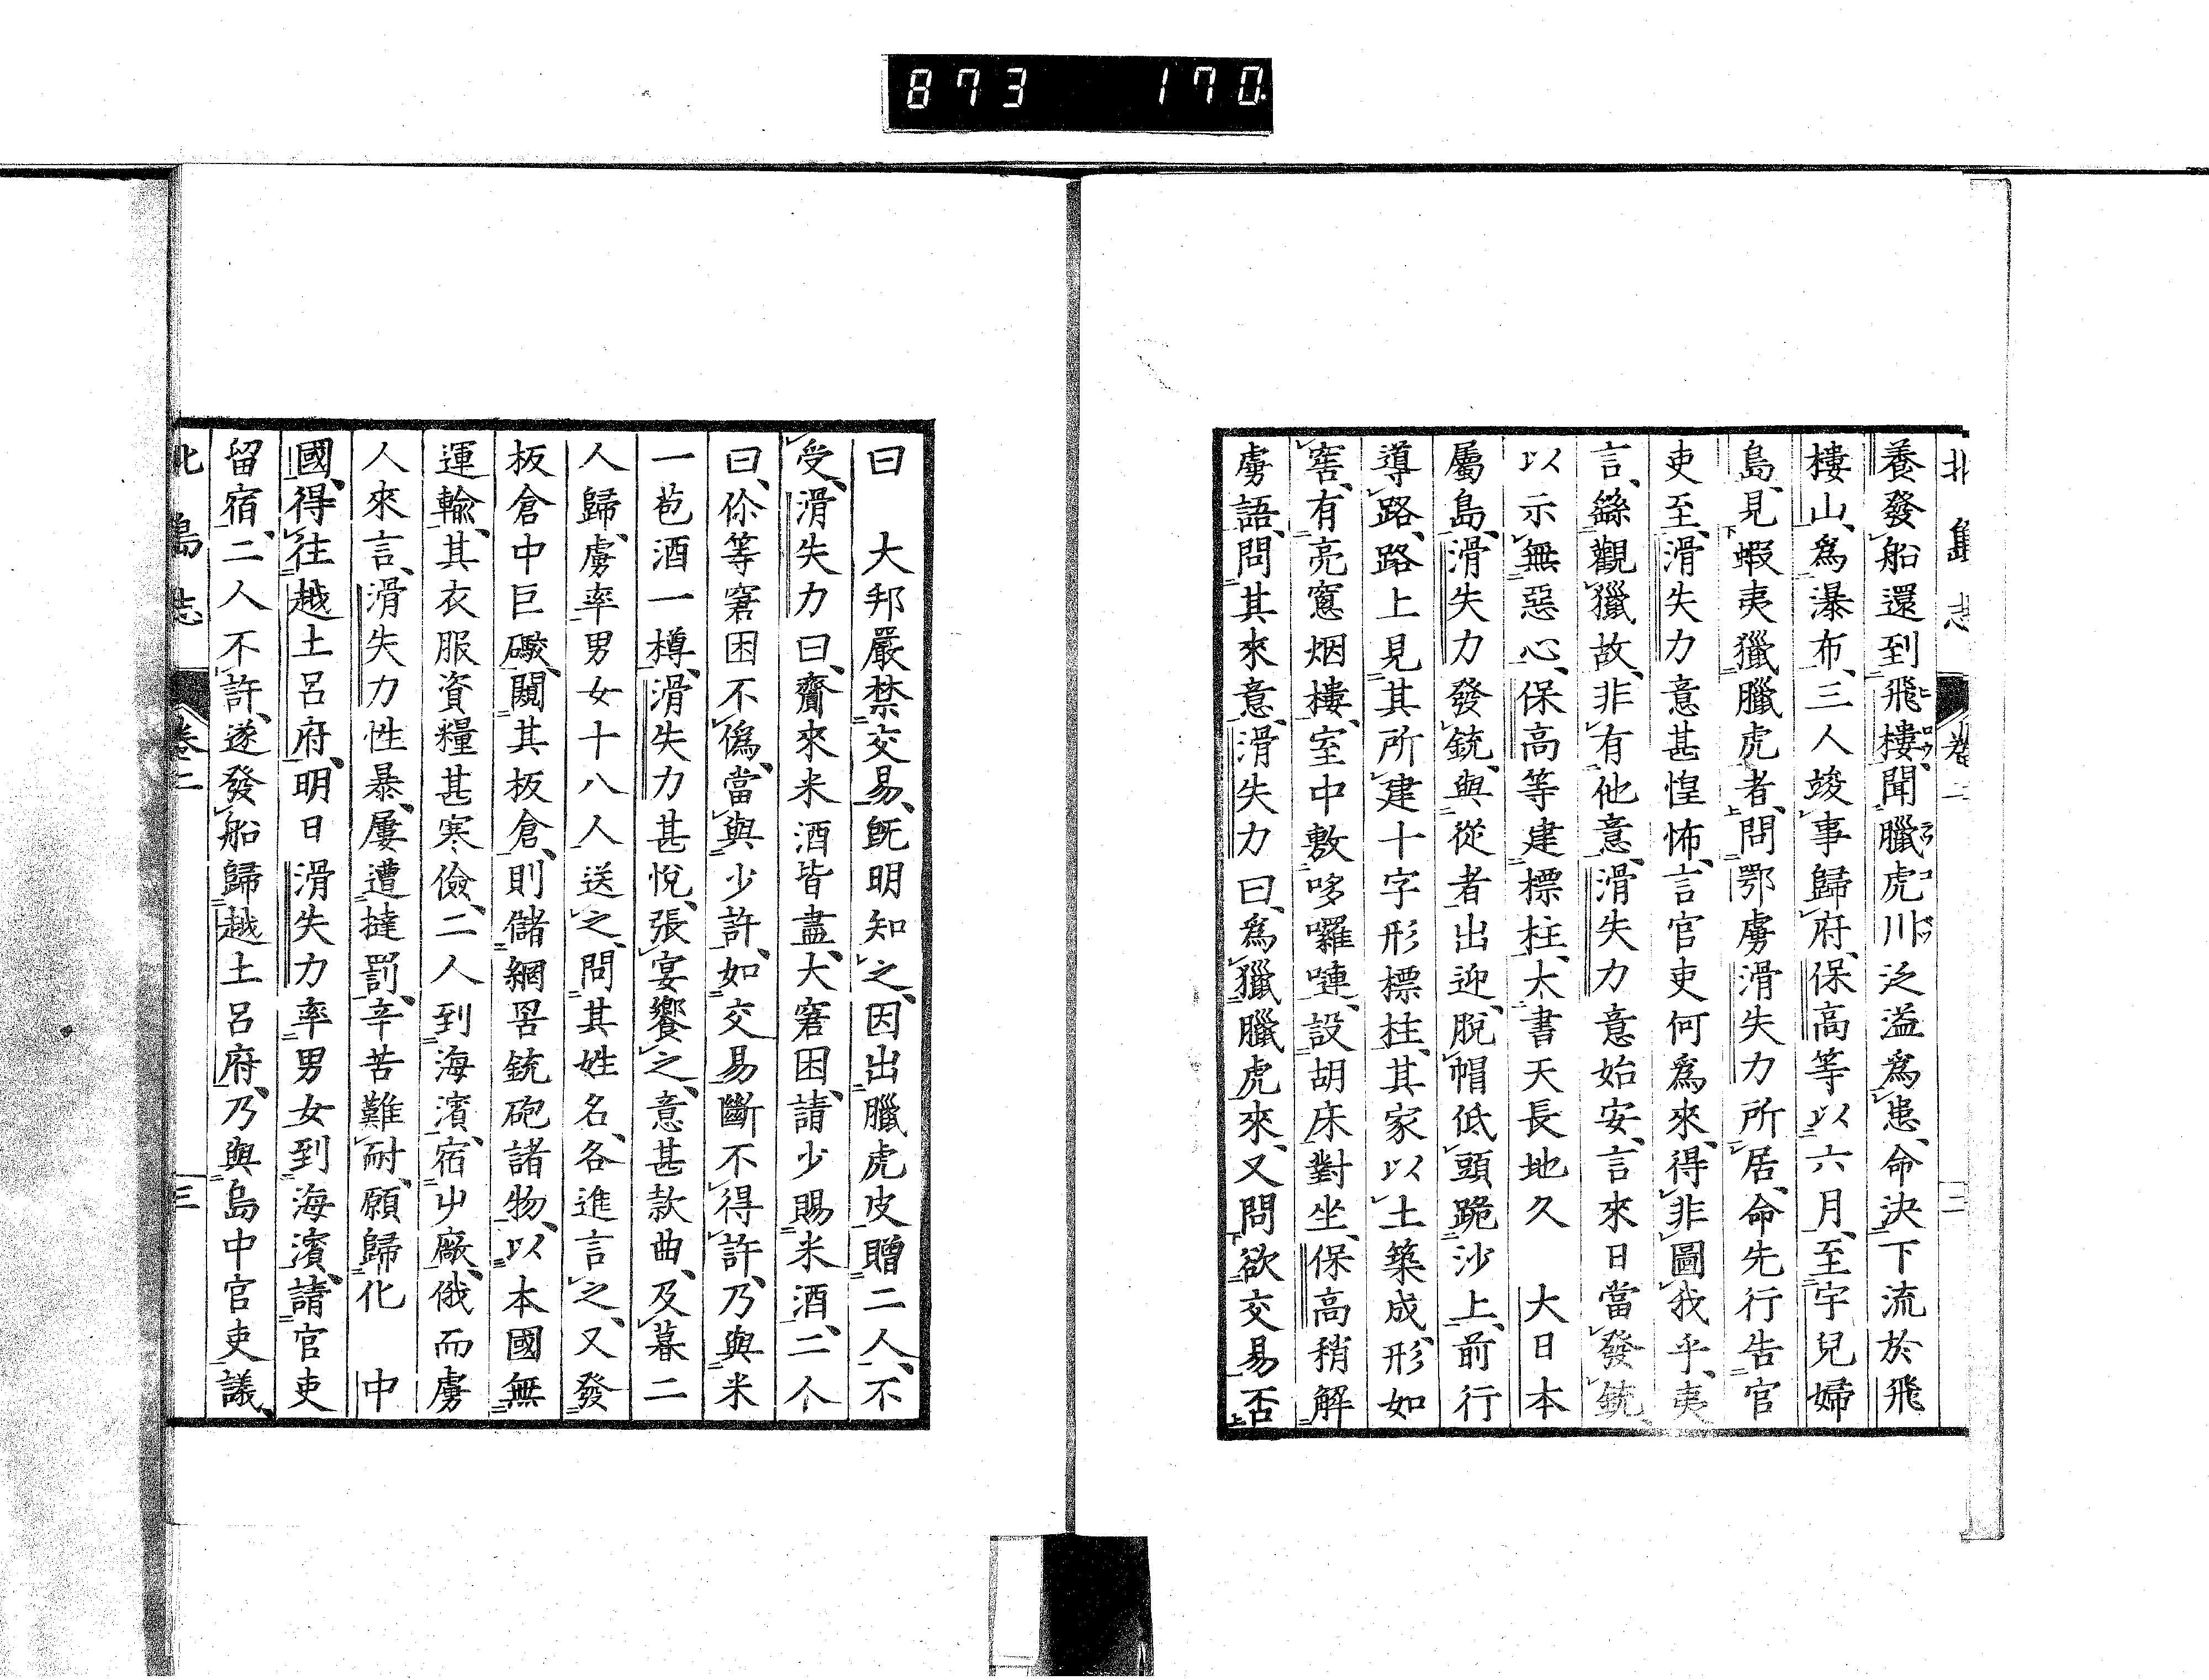 873 170.
北島志 卷二 二
養發船還到飛樓聞臘虎川泛溢爲患命決下流於飛
樓山爲瀑布三人竣事歸府保高等以六月至宇兒婦
島見蝦夷獵臘虎者問鄂虜滑失力所居命先行告官
吏至滑失力意甚惶怖言官吏何爲來得非圖我乎夷
言繇觀獵故非有他意滑失力意始安言來日當發銃
以示無惡心保高等建標柱大書天長地久 大日本
屬島滑失力發銃與從者出迎脫帽低頭跪沙上前行
導路路上見其所建十字形標柱其家以土築成形如
窖有亮窻烟樓室中敷哆囉嗹設胡床對坐保高稍解
虜語問其來意滑失力曰爲獵臘虎來又問欲交易否
曰 大邦嚴禁交易既明知之因出臘虎皮贈二人不
受滑失力曰齎來米酒皆盡大窘困請少賜米酒二人
曰伱等窘困不僞當與少許如交易斷不得許乃與米
一苞酒一樽滑失力甚悅張宴饗之意甚款曲及暮二
人歸虜率男女十八人送之問其姓名各進言之又發
板倉中巨礮閱其板倉則儲網罟銃砲諸物以本國無
運輸其衣服資糧甚寒儉二人到海濱宿屮廠俄而虜
人來言滑失力性暴屢遭撻罰辛苦難耐願歸化 中
國得往越土呂府明日滑失力率男女到海濱請官吏
留宿二人不許遂發船歸越土呂府乃與島中官吏議
北島志 卷二 三